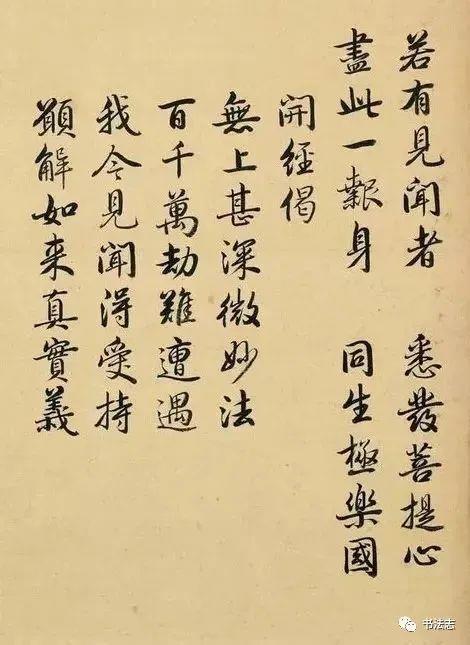 若有見聞者　悉發菩提心
盡此一報身　同生極樂國
開經偈
無上甚深微妙法
百千萬劫難遭遇
我今見聞得受持
願解如来真實義
书法志